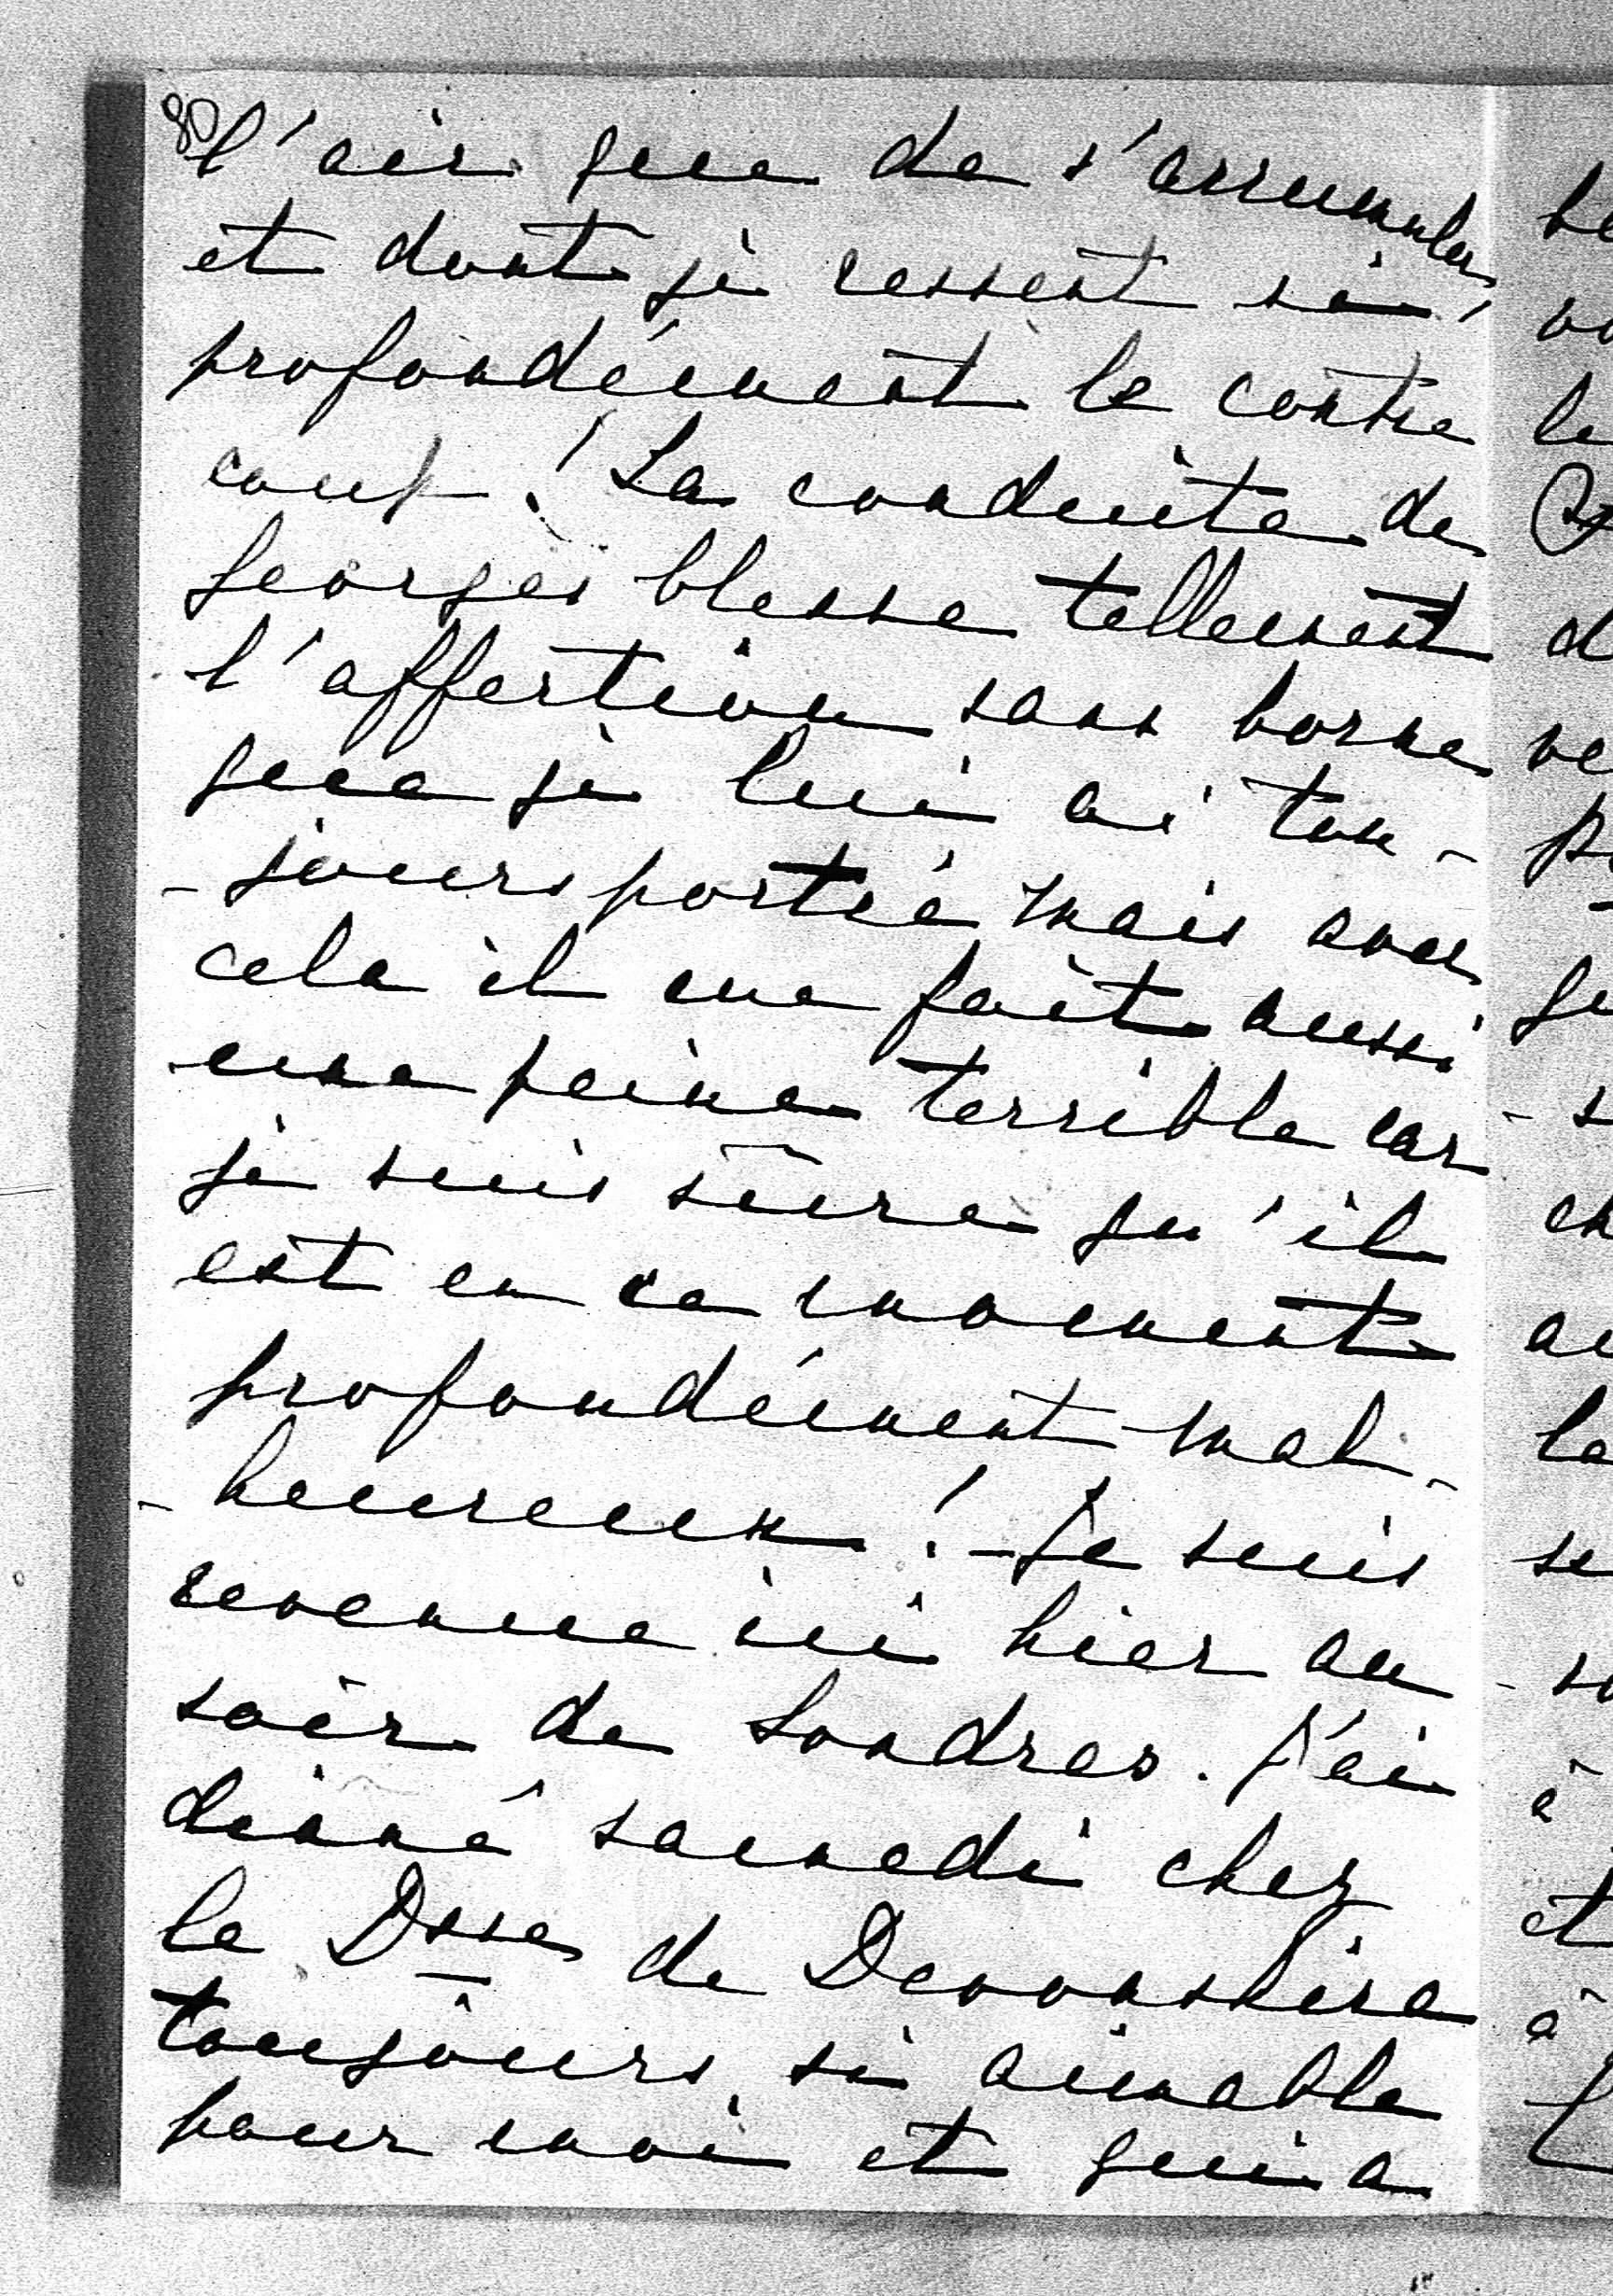 80
l'air que de s'accumuler
et dont je ressent si
profondément le contre
coup! La conduite de
Georges blesse tellement
l'affection sans borne
que je lui ai tou-
-jours portée mais avec
cela il me fait aussi
une peine terrible car
je suis sûre qu'il
est en ce moment
profondément mal-
-heureux! - Je suis
revenue ici hier au
soir de Londres. J'ai
dîné samedi chez
la Dsse de Devonshire
toujours si aimable
pour moi et qui a